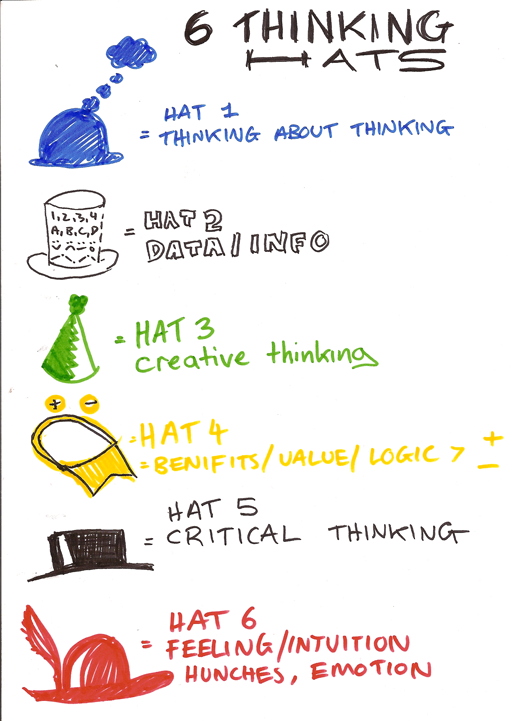 6 THINKING
HATS
HAT 1
= THINKING ABOUT THINKING
1,2,3,4
A,B,C,D
= HAT 2
DATA/INFO
= HAT 3
creative thinking
+ −
= HAT 4
= BENIFITS/VALUE/LOGIC > + −
HAT 5
= CRITICAL THINKING
HAT 6
= FEELING/INTUITION
HUNCHES, EMOTION